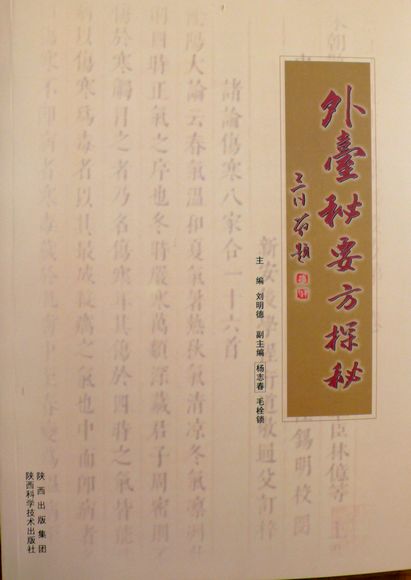 外臺秘要方探秘
主 编 刘明德 副主编 杨志春 毛栓锁
臣林億等 上
錫明校閱
諸論傷寒八家合一十六首
陰陽大論云春氣溫和夏氣暑熱秋氣清涼冬氣凛冽
則四時正氣之序也冬時嚴寒萬類深藏君子周密則
傷於寒觸冒之者乃名傷寒耳其傷於四時之氣皆能
病以傷寒爲毒者以其最成殺癘之氣也中而即病者
傷寒不即病者寒毒藏於肌膚中至春變爲
陕西出版集团
陕西科学技术出版社